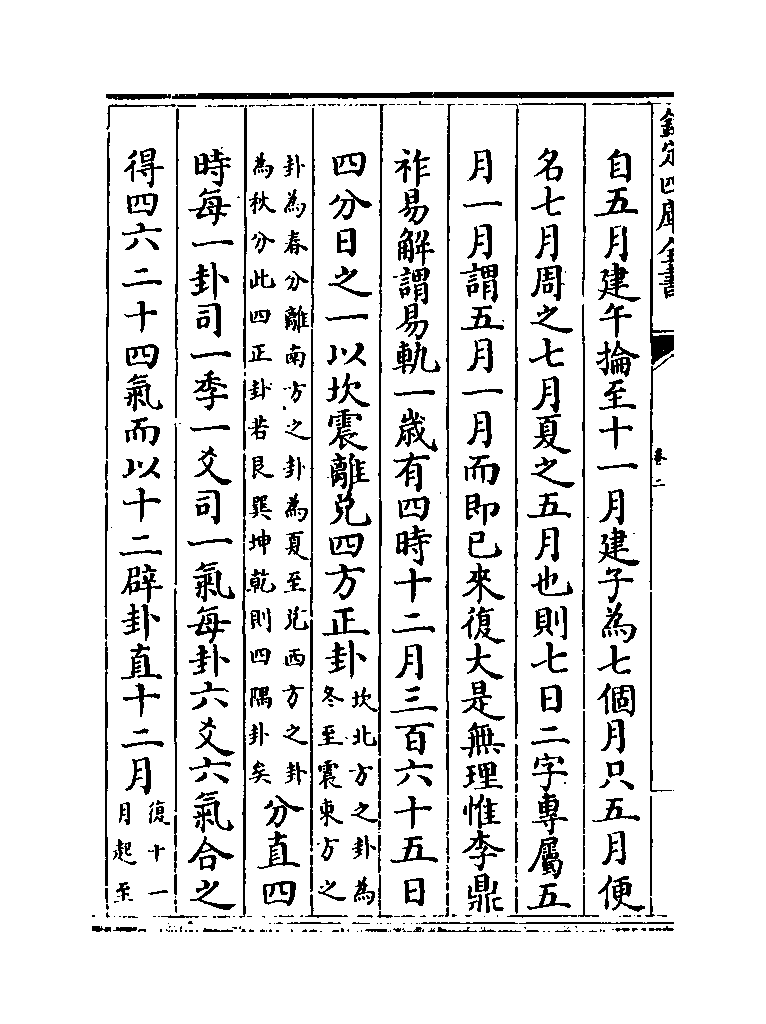 欽定四庫全書
卷二
自五月建午掄至十一月建子為七個月只五月便
名七月周之七月夏之五月也則七日二字專屬五
月一月謂五月一月而即已來復大是無理惟李鼎
祚易解謂易軌一歲有四時十二月三百六十五日
四分日之一以坎震離兌四方正卦坎北方之卦為
冬至震東方之
卦為春分離南方之卦為夏至兌西方之卦
為秋分此四正卦若艮巽坤乾則四隅卦矣
分直四
時每一卦司一季一爻司一氣每卦六爻六氣合之
得四六二十四氣而以十二辟卦直十二月復十一
月起至